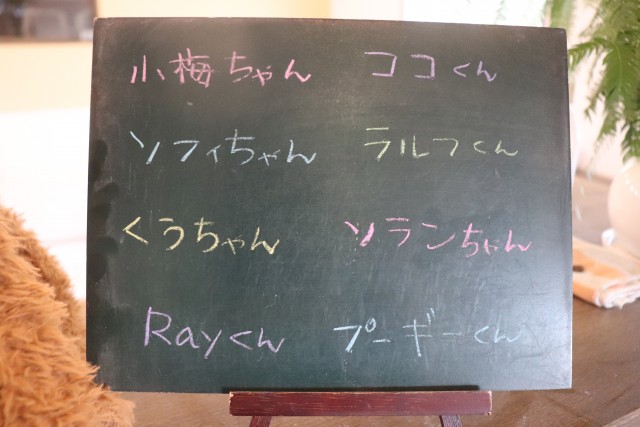 小梅ちゃん ココくん
ソフィちゃん ラルフくん
くうちゃん ソランちゃん
Rayくん プーギーくん